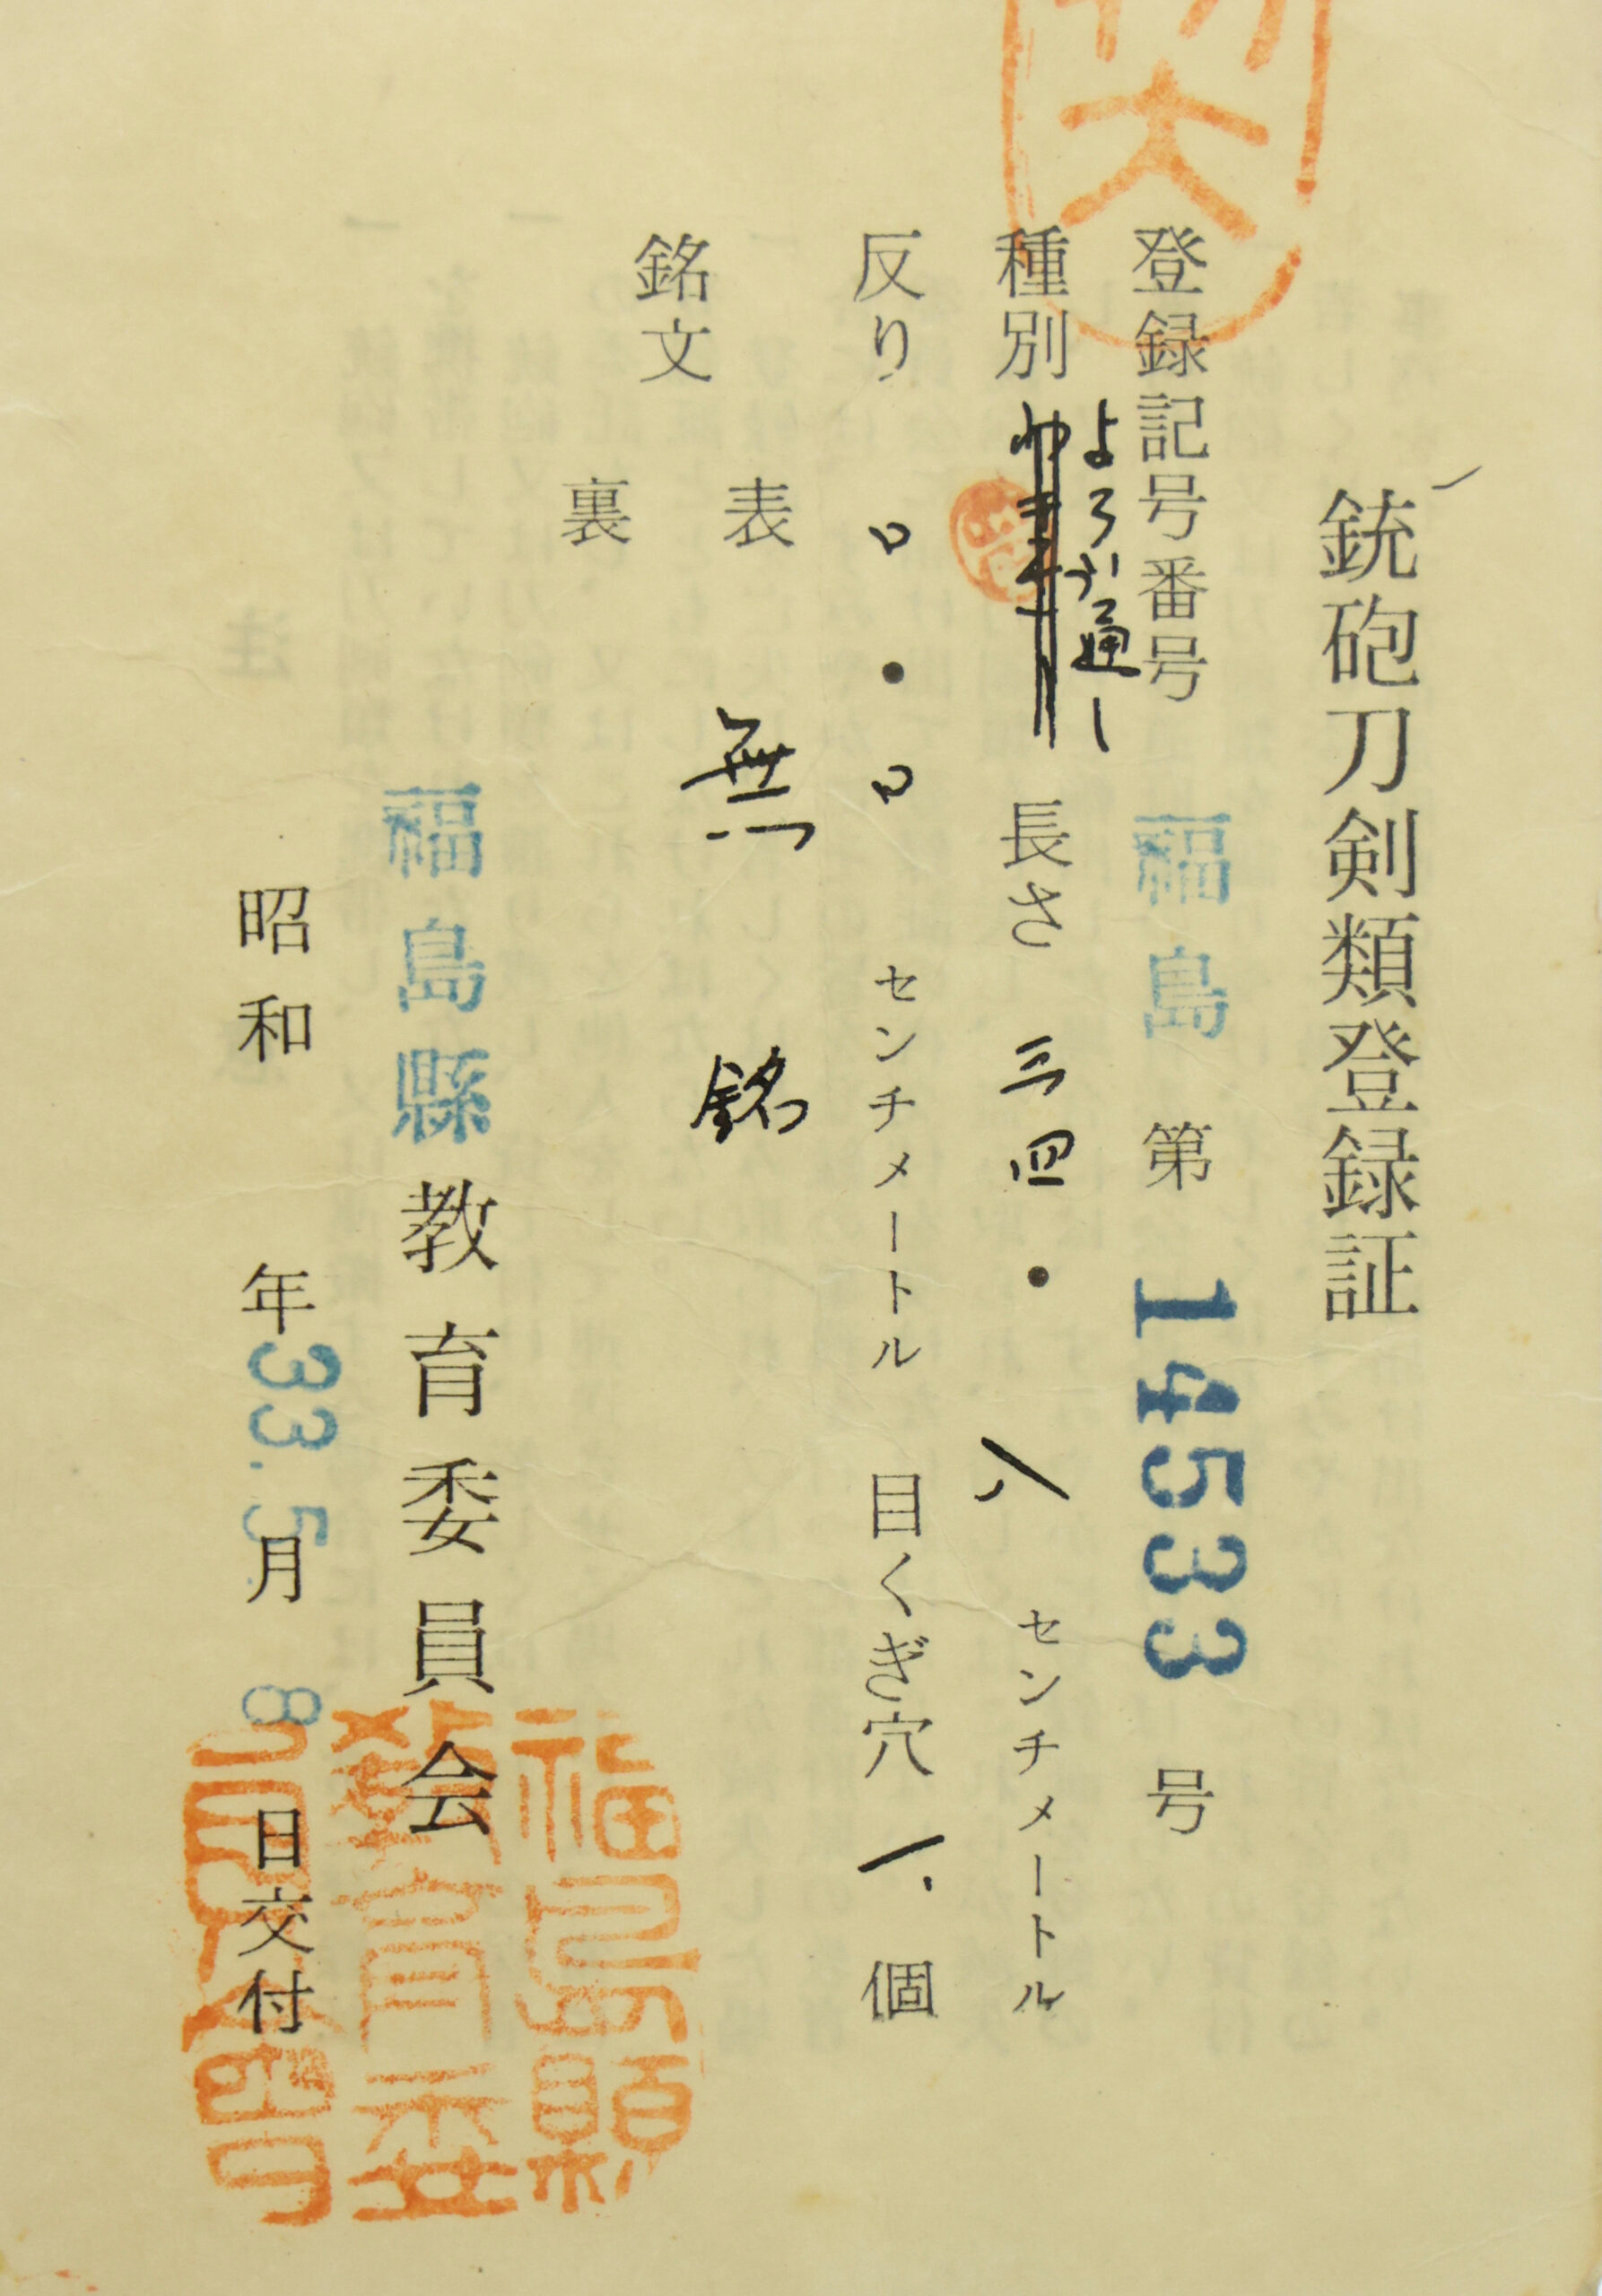 銃砲刀剣類登録証
登録記号番号 福島 第 14533 号
よろい通し
種別 長さ 三四・八 センチメートル
反り ロ・ロ センチメートル 目くぎ穴 一 個
銘文
表 無銘
裏
福島縣教育委員会
昭和 33年 5月 8日交付
福島縣
教育委
員会